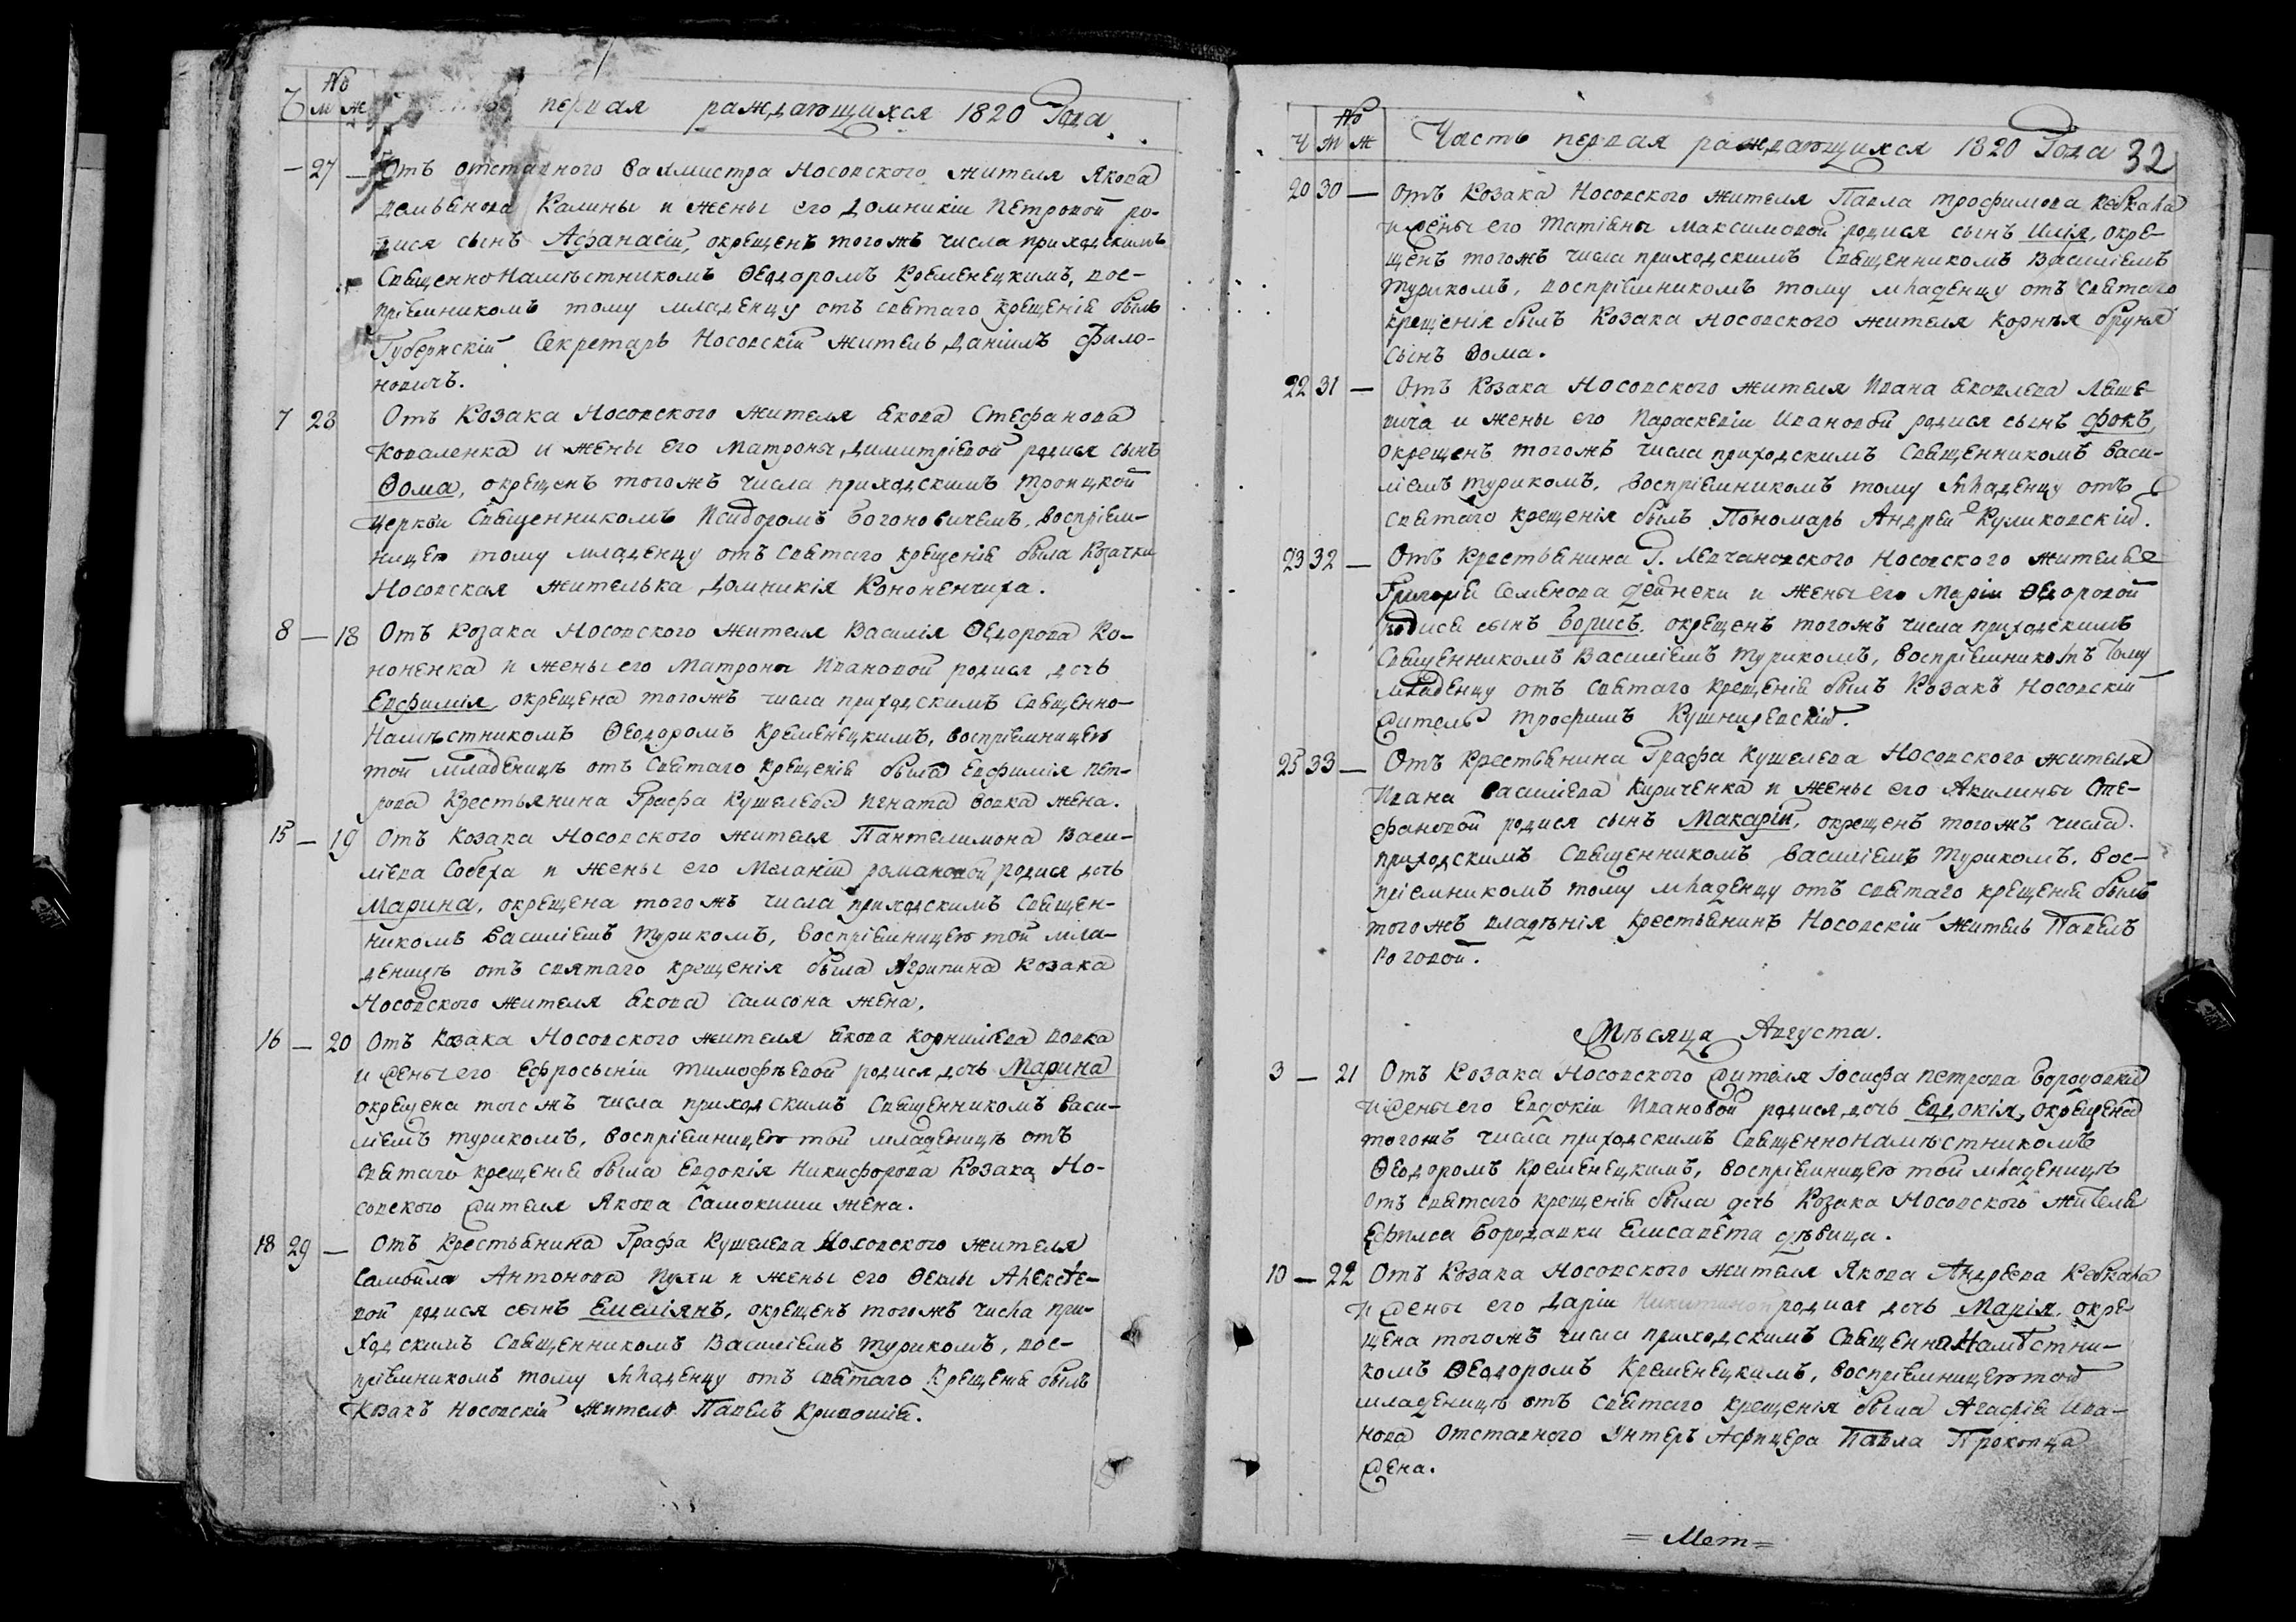 №
Ч м ж первая раждающихся 1820 Года
— 27 — Отъ отставного вахмистра Носовского жителя Якова
Демьянова Калины и жены его Домникіи Петровой ро-
дися сынъ Афанасій, окрещенъ тогожъ числа приходскимъ
Священнонамѣстникомъ Ѳеодоромъ Кременецкимъ, вос-
пріемникомъ тому младенцу отъ святаго крещенія былъ
Губернскій Секретарь Носовскій житель Даніилъ Фило-
новичъ.
7 28 Отъ Козака Носовского жителя Якова Стефанова
Коваленка и жены его Матроны Димитріевой родися сынъ
Ѳома, окрещенъ тогожъ числа приходскимъ Троицкой
церкви Священникомъ Исидоромъ Богоновичемъ, воспріем-
ницею тому младенцу отъ святаго крещенія была Козачка
Носовская жителька Домникія Кононенчиха.
8 — 18 Отъ Козака Носовского жителя Василія Ѳедорова Ко-
ноненка и жены его Матроны Ивановой родися дочь
Евфимія, окрещена тогожъ числа приходскимъ Священно-
Намѣстникомъ Ѳеодоромъ Кременецкимъ, воспріемницею
той младеницѣ отъ святаго крещенія была Евфимія Пет-
рова Крестьянина Графа Кушелева Игната вовка жена.
15 — 19 Отъ Козака Носовского жителя Пантелимона Васи-
ліева Собеха и жены его Меланіи романовой родися дочь
Марина, окрещена тогожъ числа приходскимъ Священ-
никомъ Василіемъ Туликомъ, воспріемницею той мла-
деницѣ отъ святаго крещенія была Агрипина Козака
Носовского жителя Якова Самсона жена.
16 — 20 Отъ Козака Носовского жителя Якова Корниліева вовка
и жены его Ефросыніи Тимофѣевой родися дочь Марина
окрещена тогожъ числа приходскимъ Священникомъ Васи-
ліемъ Туликомъ, воспріемницею той младеницѣ отъ
святаго крещенія была Евдокія Никифорова Козака Но-
совского жителя Якова Самокиши жена.
18 29 — Отъ Крестьянина Графа Кушелева Носовского жителя
Самойла Антонова Пухи и жены его Ѳеклы Алексѣе-
вой родися сынъ Емеліянъ, окрещенъ тогожъ числа при-
ходскимъ Священникомъ Василіемъ Туликомъ, вос-
пріемникомъ тому младенцу отъ святаго крещенія былъ
Козакъ Носовскій житель Павелъ Кривошія.
№
Ч М Ж Часть первая раждающихся 1820 Года 32
20 30 — Отъ Козака Носовского жителя Павла Трофимова
и жены его Татіяны Максимовой родися сынъ Илія, окре-
щенъ тогожъ числа приходскимъ Священникомъ Василіемъ
Туликомъ, воспріемникомъ тому младенцу отъ святаго
крещенія былъ Козака Носовского жителя Корнѣя Бруня
сынъ Ѳома.
22 31 — Отъ Козака Носовского жителя Ивана Яковлева Леше-
вича и жены его Параскевіи Ивановой родися сынъ Фокъ,
окрещенъ тогожъ числа приходскимъ Священникомъ Васи-
ліемъ Туликомъ, воспріемникомъ тому младенцу отъ
святаго крещенія былъ Пономарь Андрей Куликовскій.
23 32 — Отъ Крестьянина Г. Левчановского Носовского жителя
Григорія Семенова Дейнеки и жены его Маріи Ѳедоровой
родися сынъ Борисъ, окрещенъ тогожъ числа приходскимъ
Священникомъ Василіемъ Туликомъ, воспріемникомъ тому
младенцу отъ святаго крещенія былъ Козакъ Носовскій
житель Трофимъ Кушниревскій.
25 33 — Отъ Крестьянина Графа Кушелева Носовского жителя
Ивана Василіева Кириченка и жены его Акилины Сте-
фановой родися сынъ Макарій, окрещенъ тогожъ числа
приходскимъ Священникомъ Василіемъ Туликомъ, вос-
пріемникомъ тому младенцу отъ святаго крещенія былъ
тогожъ владѣнія Крестьянинъ Носовскій житель Павелъ
Роговой.
Мѣсяца Августа.
3 — 21 Отъ Козака Носовского жителя Іосифа Петрова Бородавки
и жены его Евдокіи Ивановой родися дочь Евдокія, окрещена
тогожъ числа приходскимъ Священнонамѣстникомъ
Ѳеодоромъ Кременецкимъ, воспріемницею той младеницѣ
отъ святаго крещенія была дочь Козака Носовского жителя
Бородавки Елисавета дѣвица.
10 — 22 Отъ Козака Носовского жителя Якова Андреева
и жены его Даріи Никитиной родися дочь Марія, окре-
щена тогожъ числа приходскимъ Священнонамѣстни-
комъ Ѳеодоромъ Кременецкимъ, воспріемницею той
младеницѣ отъ святаго крещенія была Агафія Ива-
нова Отставного Унтеръ Афицера Павла Прокопца
жена.
= Мет =